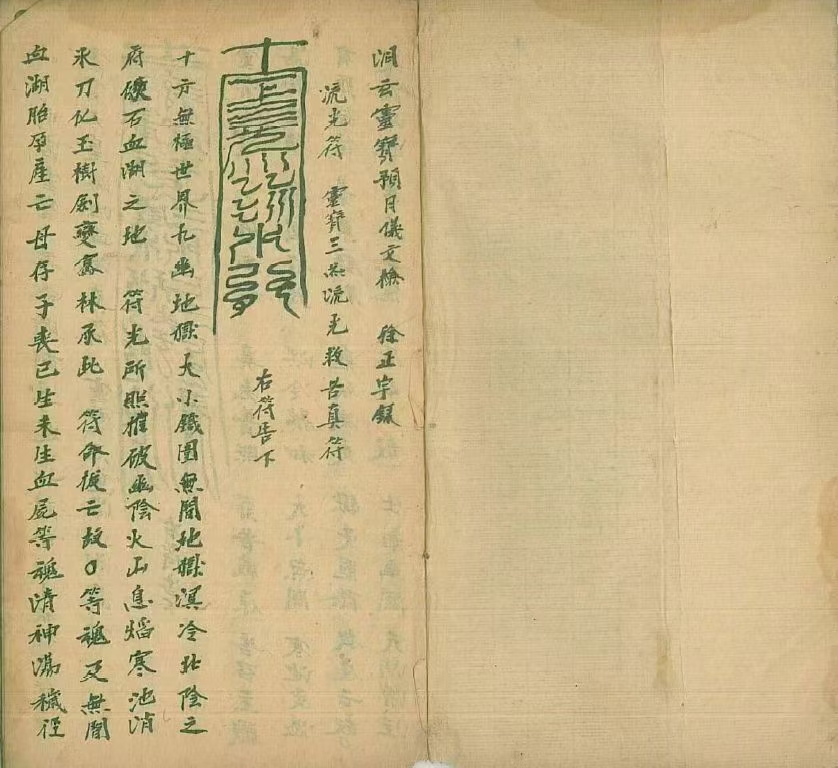 洞玄靈寶預月儀文檢　徐正宇錄
流光符　靈寶三炁流光救苦真符
右符告下
十方無極世界九幽地獄大小鐵圍無間地獄溟冷北陰之
府硤石血湖之地　符光所照摧破幽陰火山息焰寒池消
氷刀化玉樹劍變騫林承此　符命拔亡故〇等魂及無間
血湖胎孕產亡母存子喪已生未生血屍等魂清神蕩穢徑